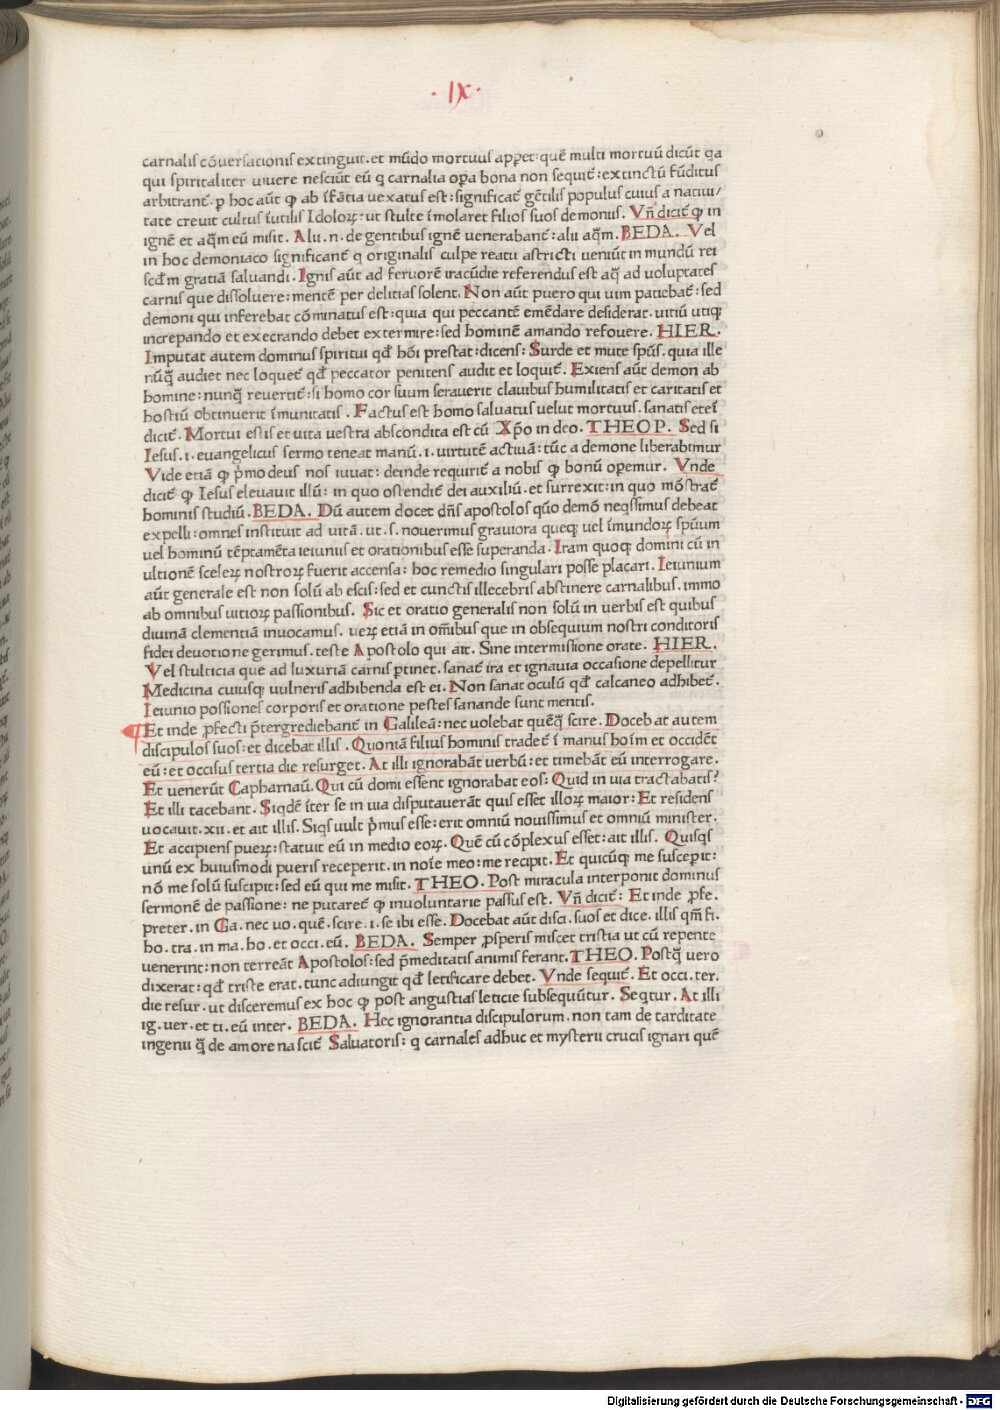 · IX ·
carnalis cōuersacionis extinguit.et mūdo mortuus appet:quē multi mortuū dicūt qa
qui spiritaliter uiuere nesciūt eū q carnalia opa bona non sequit̄:extinctū fūditus
arbitrant̄. ꝑ hoc aūt ꝙ ab īfātia uexatus est:significat̄ gētilis populus cuius a natiui/
tate creuit cultus īutilis Idoloꝝ:ut stulte īmolaret filios suos demoniis. Vn̄ dicit̄ ꝙ in
ignē et aq̄m eū misit. Alii.n.de gentibus ignē uenerabant̄:alii aq̄m. BEDA. Vel
in hoc demoniaco significant̄ q originalis culpe reatu astricti ueniūt in mundū rei
scd̄m gratiā saluandi. Ignis aūt ad feruorē iracūdie referendus est aq̄ ad uoluptates
carnis que dissoluere:mentē per delitias solent. Non aūt puero qui uim patiebat̄:sed
demoni qui inferebat cōminatus est:quia qui peccantē emēdare desiderat.uitiū utiqꝫ
increpando et execrando debet extermire:sed hominē amando refouere. HIER.
Imputat autem dominus spiritui qd̄ hōi prestat:dicens: Surde et mute spūs.quia ille
nūq̄ audiet nec loquet̄ qd̄ peccator penitens audit et loquit̄. Exiens aūt demon ab
homine:nunq̄ reuertit̄:si homo cor suum serauerit clauibus humilitatis et caritatis et
hostiū obtinuerit īmunitatis. Factus est homo saluatus uelut mortuus.sanatis eteī
dicit̄. Mortui estis et uita uestra abscondita est cū Xp̄o in deo. THEOP. Sed si
Iesus.i.euangelicus sermo teneat manū.i.uirtutē actiuā:tūc a demone liberabimur
Vide etiā ꝙ p̄mo deus nos iuuat:deinde requirit̄ a nobis ꝙ bonū operemur. Vnde
dicit̄ ꝙ Iesus eleuauit illū:in quo ostendit̄ dei auxiliū.et surrexit:in quo mōstrat̄
hominis studiū. BEDA. Dū autem docet dn̄s apostolos quō demō neq̄ssimus debeat
expelli:omnes instituit ad uitā.ut.s.nouerimus grauiora queqꝫ uel īmundoꝝ spūum
uel hominū tēptamēta ieiuniis et orationibus esse superanda. Iram quoqꝫ domini cū in
ultionē sceleꝝ nostroꝝ fuerit accensa:hoc remedio singulari posse placari. Ieiunium
aūt generale est non solū ab escis:sed et cunctis illecebris abstinere carnalibus.immo
ab omnibus uitioꝝ passionibus. Sic et oratio generalis non solū in uerbis est quibus
diuinā clementiā inuocamus.ueꝝ etiā in om̄ibus que in obsequium nostri conditoris
fidei deuotione gerimus.teste Apostolo qui ait. Sine intermissione orate. HIER.
Vel stulticia que ad luxuriā carnis ꝑtinet.sanat̄ ira et ignauia occasione depellitur
Medicina cuiusqꝫ uulneris adhibenda est ei. Non sanat oculū qd̄ calcaneo adhibet̄.
Ieiunio possiones corporis et oratione pestes sanande sunt mentis.
¶ Et inde ꝓfecti p̄tergrediebant̄ in Galileā:nec uolebat quēq̄ scire. Docebat autem
discipulos suos:et dicebat illis. Quoniā filius hominis tradet̄ ī manus hoīm et occidēt
eū:et occisus tertia die resurget. At illi ignorabāt uerbū:et timebāt eū interrogare.
Et uenerūt Capharnaū. Qui cū domi essent ignorabat eos: Quid in uia tractabatis?
Et illi tacebant. Siqdē īter se in uia disputauerāt quis esset illoꝝ maior: Et residens
uocauit.xii.et ait illis. Siqs uult p̄mus esse:erit omniū nouissimus et omniū minister.
Et accipiens pueꝝ:statuit eū in medio eoꝝ. Quē cū cōplexus esset:ait illis. Quisqs
unū ex huiusmodi pueris receperit.in noīe meo:me recipit. Et quicūqꝫ me susceꝑit:
nō me solū suscipit:sed eū qui me misit. THEO. Post miracula interponit dominus
sermonē de passione:ne putaret̄ ꝙ inuoluntarie passus est. Vn̄ dicit̄: Et inde ꝓfe.
preter.in Ga.nec uo.quē.scire.i.se ibi esse. Docebat aūt disci.suos et dice.illis qm̄ fi.
ho.tra.in ma.ho.et occi.eū. BEDA. Semper ꝓsperis miscet tristia ut cū repente
uenerint:non terreāt Apostolos:sed p̄meditatis animis ferant. THEO. Postq̄ uero
dixerat:qd̄ triste erat.tunc adiungit qd̄ letificare debet. Vnde sequit̄. Et occi.ter.
die resur.ut disceremus ex hoc ꝙ post angustias leticie subsequūtur. Seqtur. At illi
ig.uer.et ti.eū inter. BEDA. Hec ignorantia discipulorum.non tam de tarditate
ingenii q̄ de amore nascit̄ Saluatoris:q carnales adhuc et mysterii crucis ignari quē
Digitalisierung gefördert durch die Deutsche Forschungsgemeinschaft - DFG